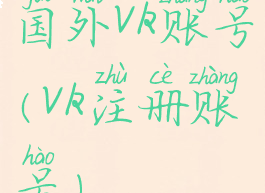 guó wài zhàng hào
国外VR账号
zhù cè zhàng
(VR,注册账
hào
号)